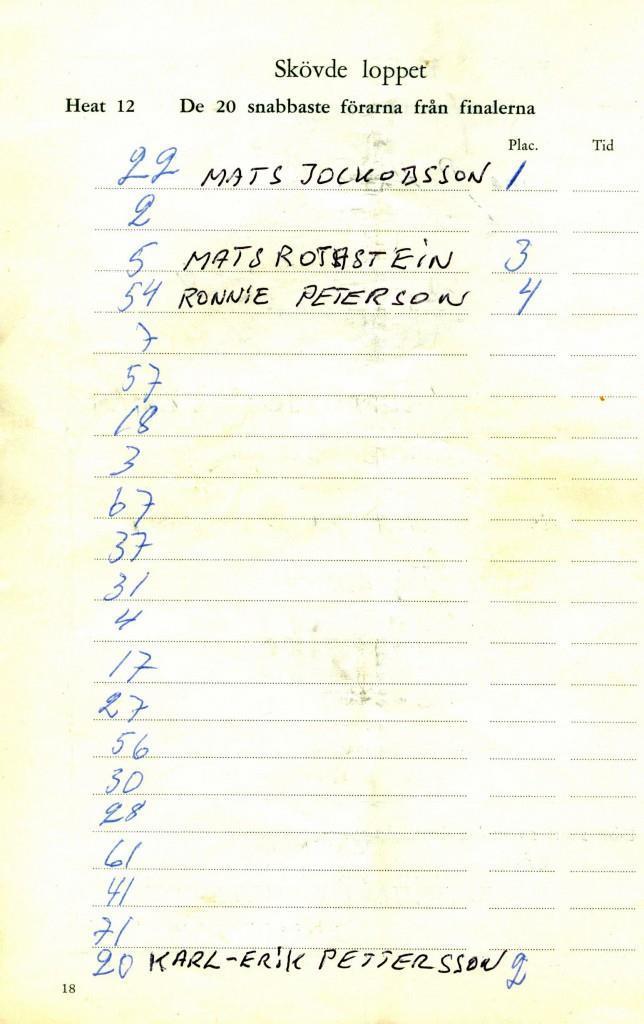 Skövde loppet
Heat 12 De 20 snabbaste förarna från finalerna
Plac. Tid
22 MATS JOCKOBSSON 1
2
5 MATS ROTHSTEIN 3
54 RONNIE PETERSON 4
7
57
18
3
67
37
31
4
17
27
56
30
28
61
41
71
20 KARL-ERIK PETTERSSON 2
18